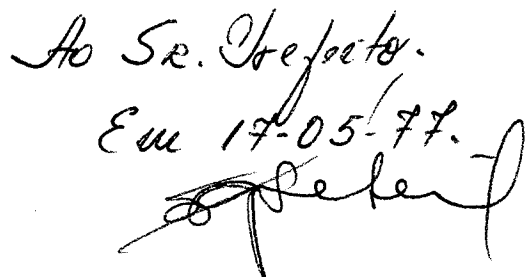 Ao Sr. Prefeito.
Em 17-05-77.